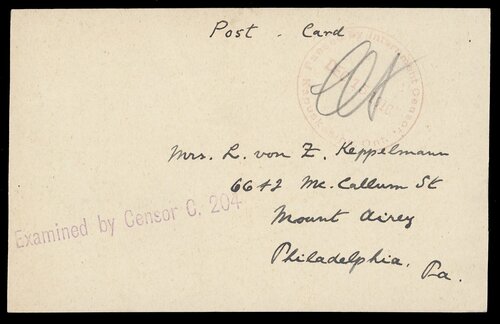 Post . Card
Internment Censor
Mrs. L. von Z. Keppelmann
6642 Mc. Callum St
Mount Airey
Philadelphia.
Pa.
Examined by Censor C. 204